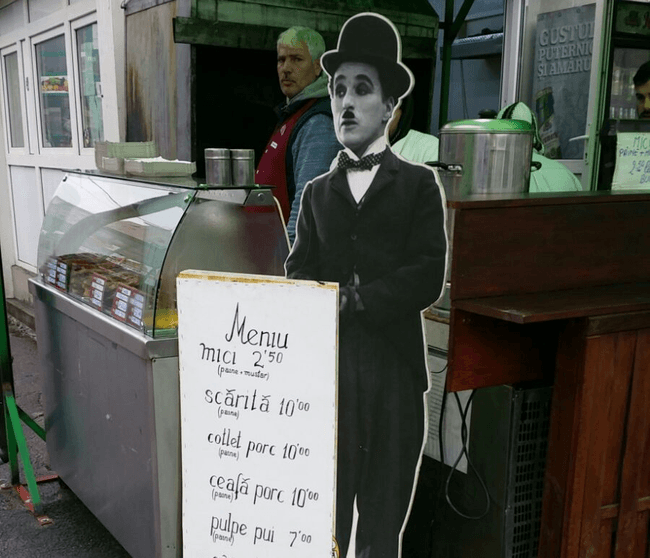 Meniu
mici 2'50
(paine + mustar)
scăriță 10'00
(paine)
cotlet porc 10'00
(paine)
ceafă porc 10'00
(paine)
pulpe pui 7'00
(paine)
GUSTUL
PUTERNIC
ȘI AMĂRUI
MICI